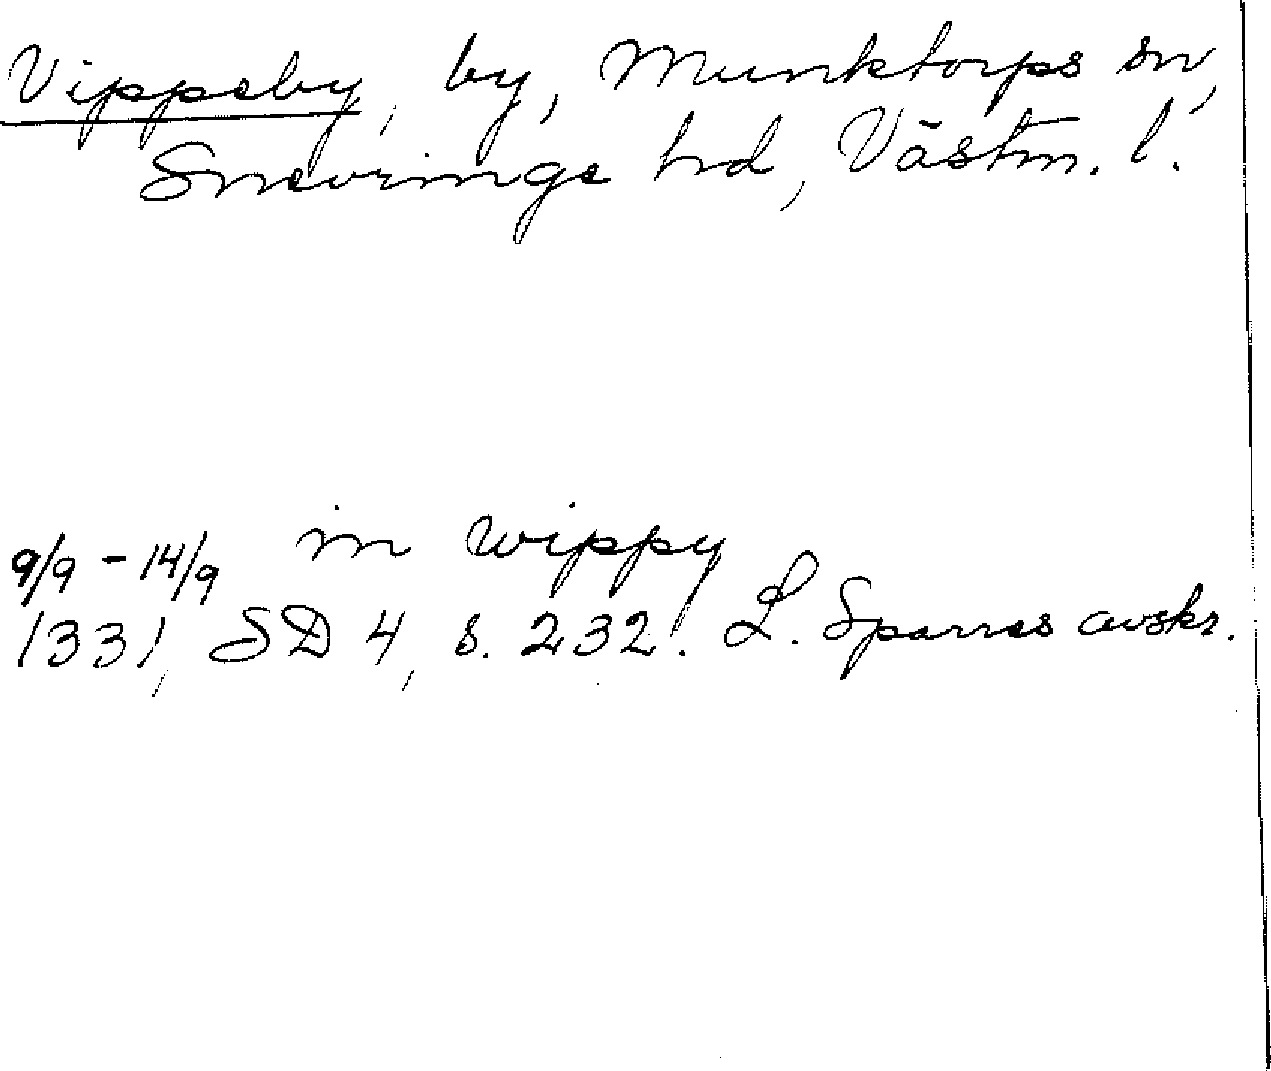 Vippsby, by, Munktorps sn,
Snevringe hd, Västm. l.
9/9 - 14/9 in wippy
1331, SD 4, s. 232. L. Sparres avskr.